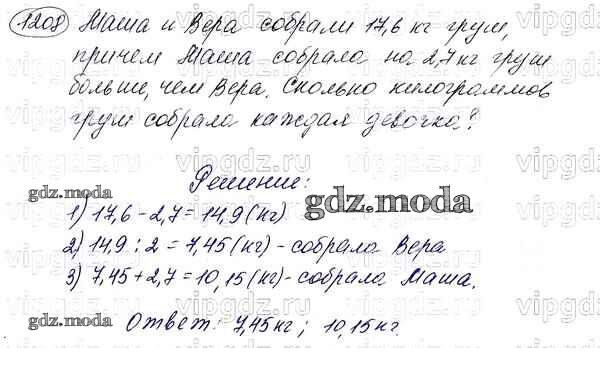 1208 Маша и Вера собрали 17,6 кг груш,
причем Маша собрала на 2,7 кг груш
больше, чем Вера. Сколько килограммов
груш собрала каждая девочка?
Решение:
gdz.moda
1) 17,6 - 2,7 = 14,9 (кг) gdz.moda
2) 14,9 : 2 = 7,45 (кг) - собрала Вера
3) 7,45 + 2,7 = 10,15 (кг) - собрала Маша.
gdz.moda Ответ: 7,45 кг; 10,15 кг.
vipgdz